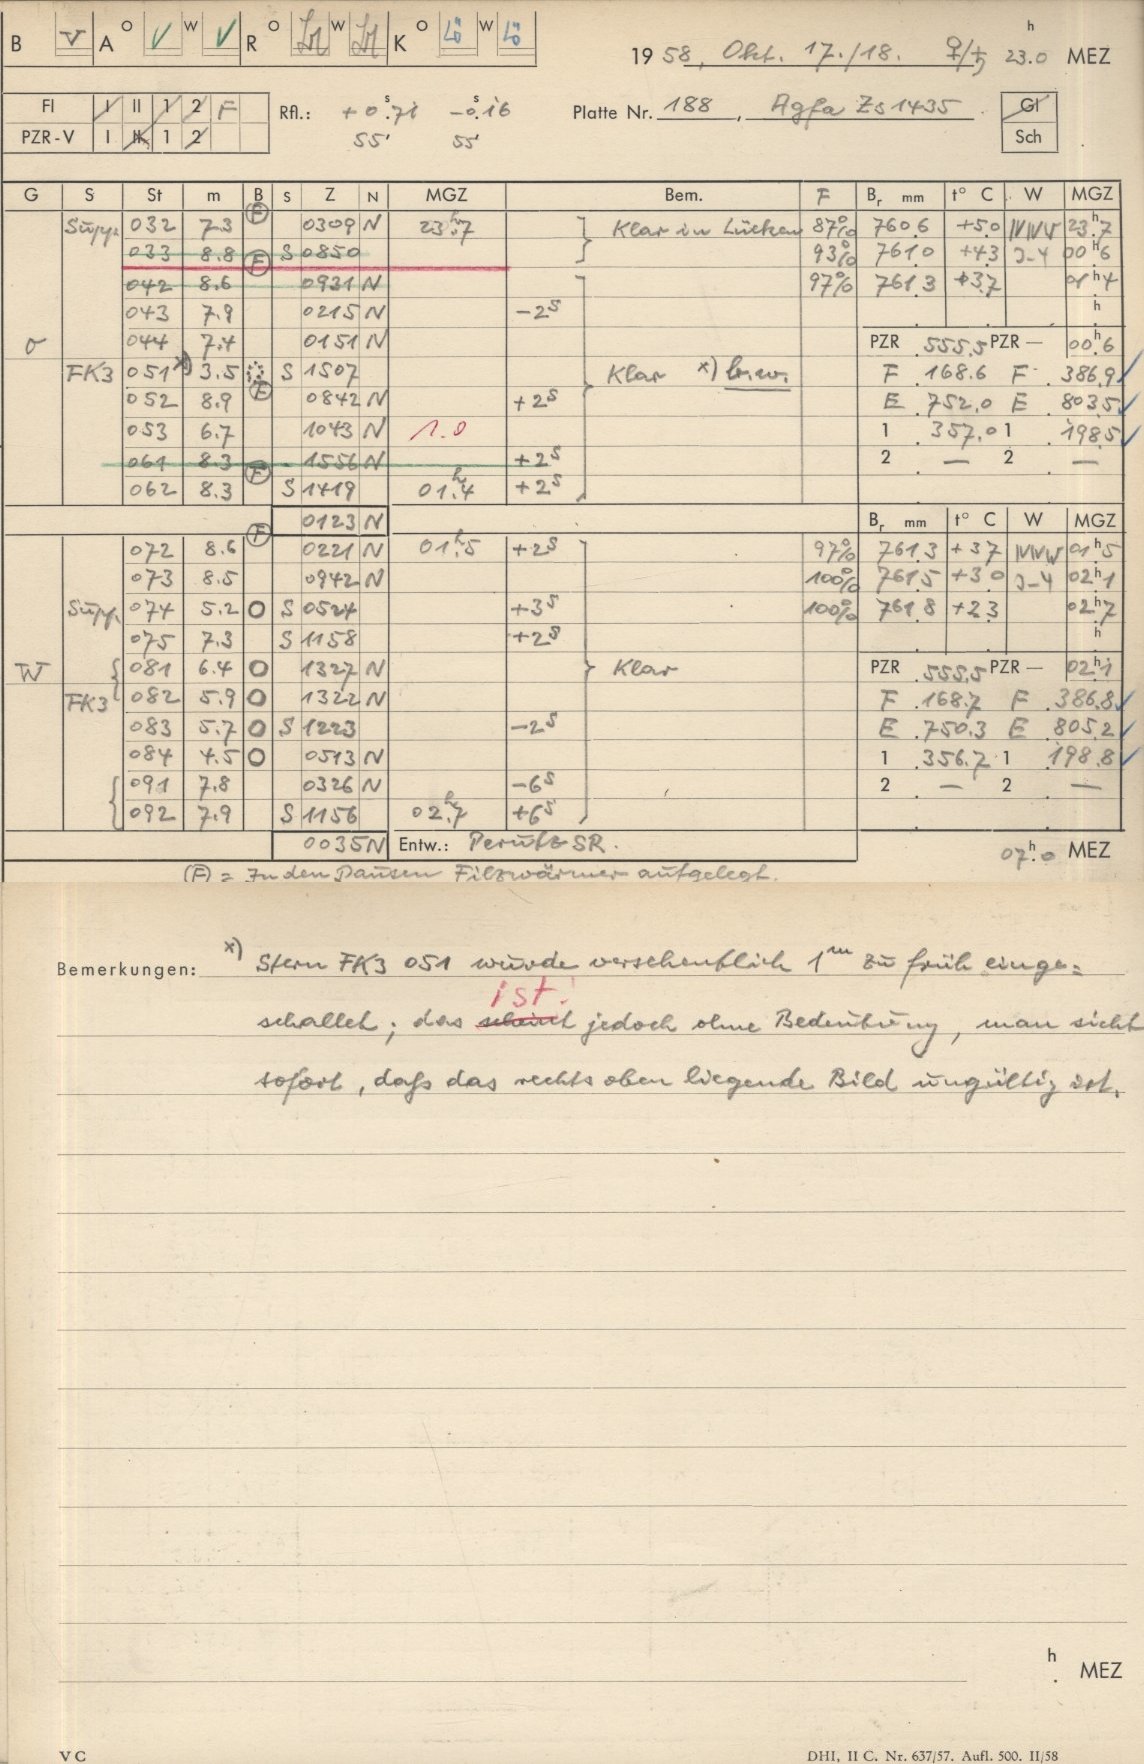 B V A O V W V R O W K O Lö W Lö
1958, Okt. 17./18. ♀/♄ 23.0 h MEZ
FI I II 1 2 F Rfl.: +0.71 s -0.16 s Platte Nr. 188, Agfa Zs 1435. Gl
PZR-V I II 1 2 55' 55' Sch
G S St m B S Z N MGZ Bem. F Br mm t° C W MGZ
Supp. 032 7.3 (F) 0309 N 23.7 h Klar in Lücken 87% 760.6 +5.0 NNW 23.7 h
033 8.8 (F) S 0850 93% 761.0 +4.3 3-4 00.6 h
042 8.6 0931 N 97% 761.3 +3.7 01.4 h
043 7.9 0215 N -2s h
σ 044 7.4 0151 N PZR 555.5 PZR — 00.6 h
FK3 051 x) 3.5 S 1507 Klar x) b.w. F 168.6 F 386.9
052 8.9 (F) 0842 N +2s E 752.0 E 803.5
053 6.7 1043 N 1.0 1 357.0 1 198.5
061 8.3 1556 N +2s 2 — 2 —
062 8.3 (F) S 1419 01.4 h +2s
0123 N Br mm t° C W MGZ
072 8.6 (F) 0221 N 01.5 h +2s 97% 761.3 +3.7 NNW 01.5 h
073 8.5 0942 N 100% 761.5 +3.0 3-4 02.1 h
Supp. 074 5.2 O S 0524 +3s 100% 761.8 +2.3 02.7 h
075 7.3 S 1158 +2s h
W 081 6.4 O 1327 N Klar PZR 555.5 PZR — 02.1 h
FK3 082 5.9 O 1322 N F 168.7 F 386.8
083 5.7 O S 1223 -2s E 750.3 E 805.2
084 4.5 O 0513 N 1 356.7 1 198.8
091 7.8 0326 N -6s 2 — 2 —
092 7.9 S 1156 02.7 h +6s
0035 N Entw.: Perutz SR. 07.0 h MEZ
(F) = In den Pausen Filzwärmer aufgelegt.
Bemerkungen: x) Stern FK3 051 wurde versehentlich 1m zu früh einge=
ist!
schaltet; das scheint jedoch ohne Bedeutung, man sieht
sofort, daß das rechts oben liegende Bild ungültig ist.
h
MEZ
VC DHI, II C. Nr. 637/57. Aufl. 500. II/58